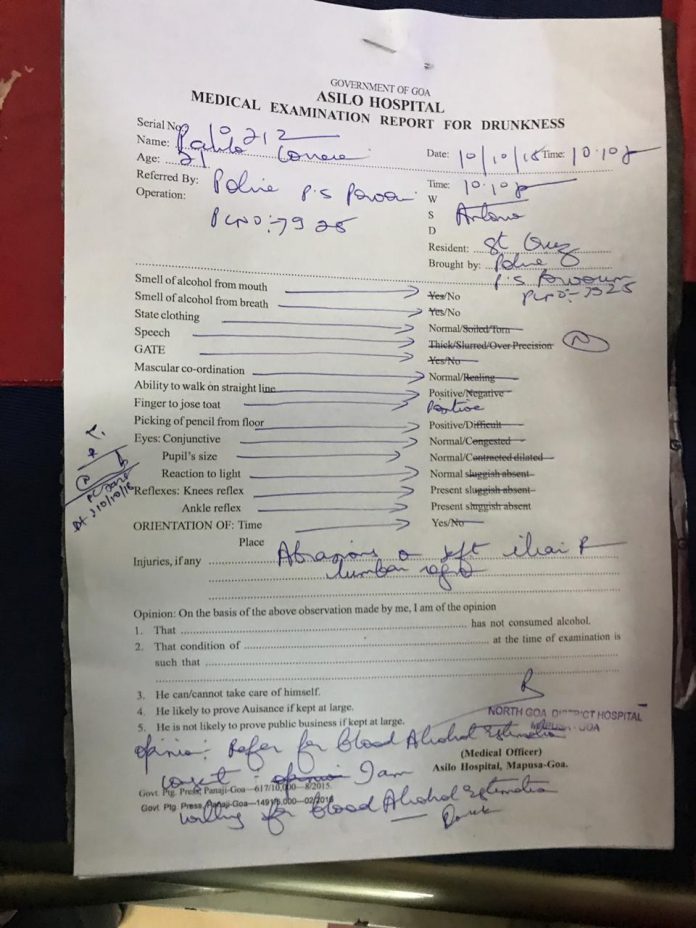 GOVERNMENT OF GOA
ASILO HOSPITAL
MEDICAL EXAMINATION REPORT FOR DRUNKNESS
Serial No. 10212
Name:
Date: 10/10/18 Time: 10.10 p
Age: 21
Referred By: Police P.S
Time: 10.10 p
Operation: PC NO:-7925
W
S Antonio
D
Resident: St Cruz
Brought by: Police
P.S
PC NO:-7925
Smell of alcohol from mouth Yes/No
Smell of alcohol from breath Yes/No
State clothing Normal/Soiled/Torn
Speech Thick/Slurred/Over Precision N
GATE Yes/No
Mascular co-ordination Normal/Realing
Ability to walk on straight line Positive/Negative
Finger to jose toat Positive
Picking of pencil from floor Positive/Difficult
Eyes: Conjunctive Normal/Congested
Pupil's size Normal/Contracted dilated
Reaction to light Normal sluggish absent
Reflexes: Knees reflex Present sluggish absent
Ankle reflex Present sluggish absent
ORIENTATION OF: Time Yes/No
Place
Injuries, if any Abrasions
lumbar
Opinion: On the basis of the above observation made by me, I am of the opinion
1. That has not consumed alcohol.
2. That condition of at the time of examination is
such that
3. He can/cannot take care of himself.
4. He likely to prove Auisance if kept at large.
5. He is not likely to prove public business if kept at large.
NORTH GOA DISTRICT HOSPITAL
MAPUSA - GOA
Opinio: Refer for blood Alcohol Estimation
(Medical Officer)
Asilo Hospital, Mapusa-Goa.
I am
Govt. Ptg. Press, Panaji-Goa—617/10,000—8/2015.
Govt Ptg. Press, Panaji-Goa—1491/5,000—02/2016
willing for blood Alcohol Estimation